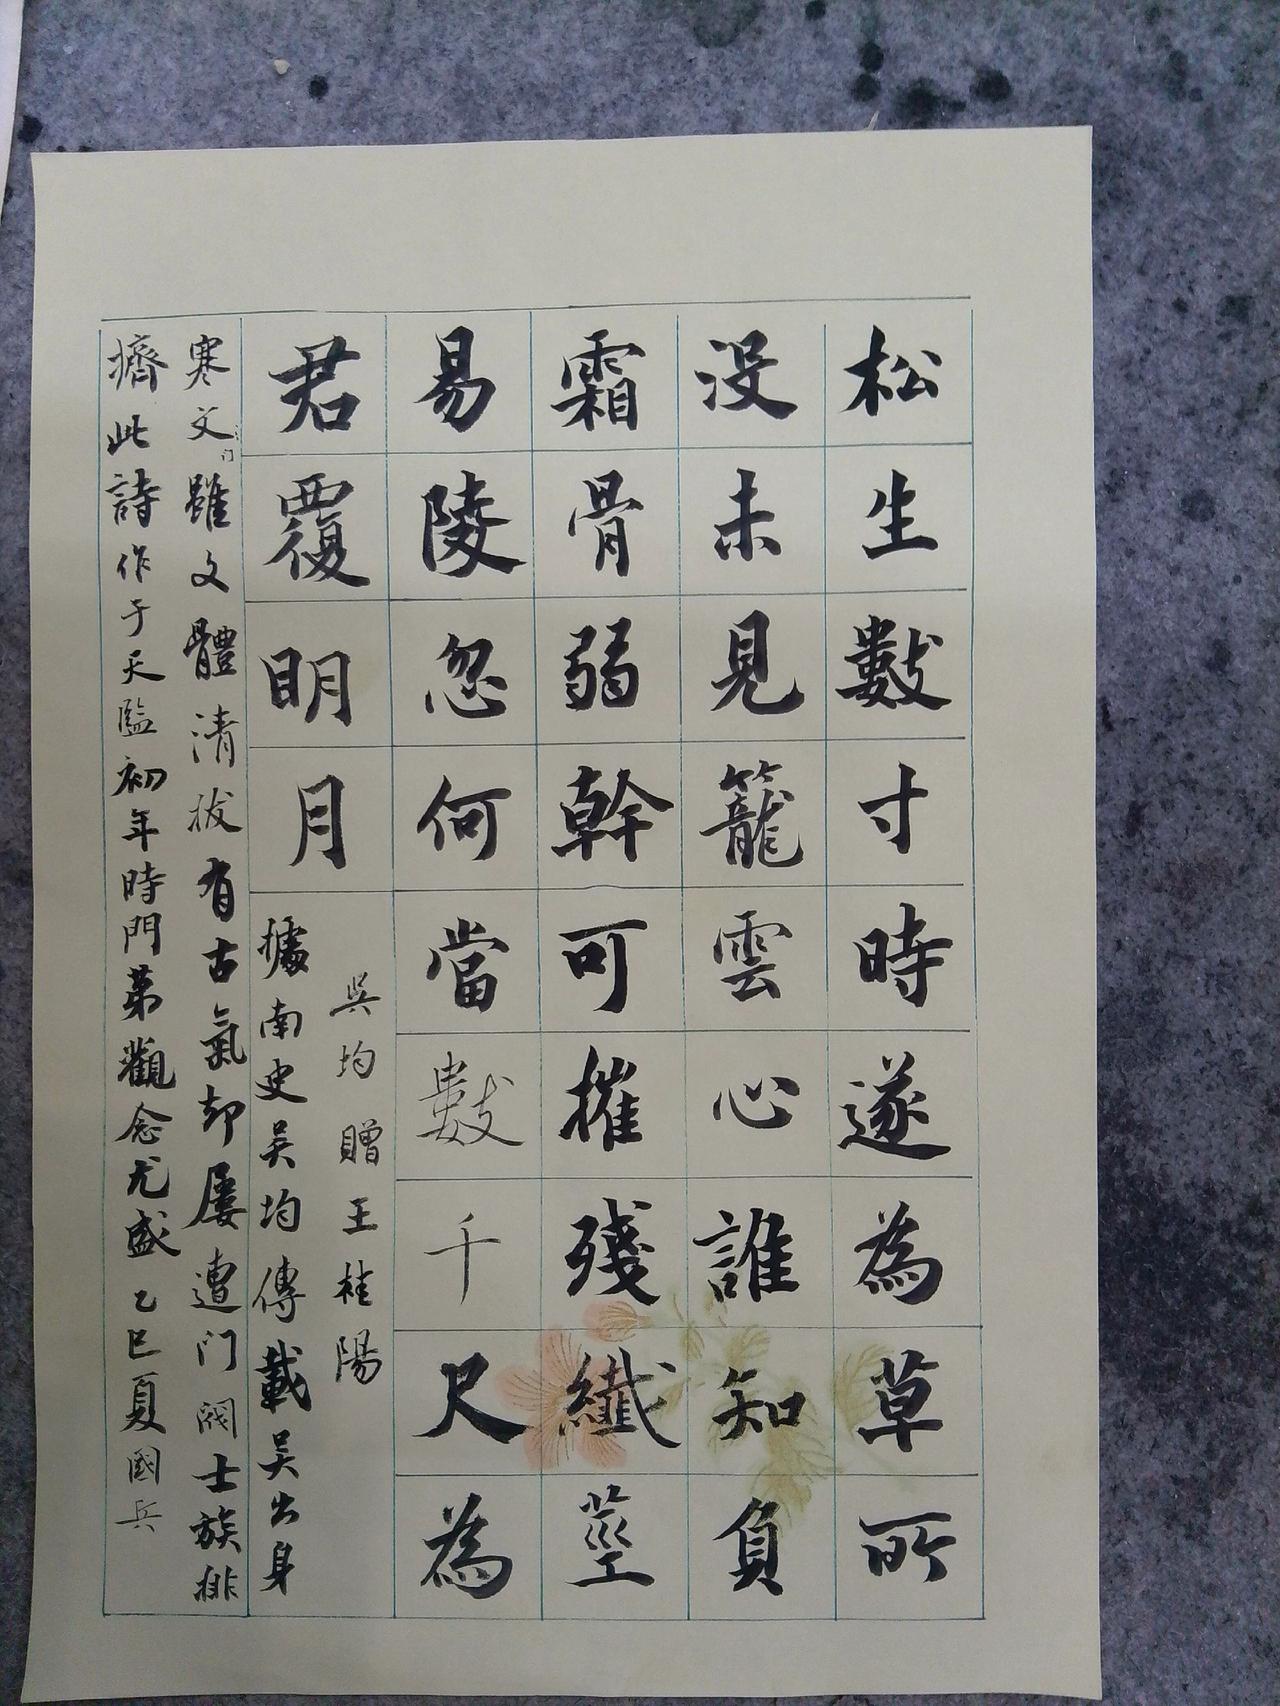 松生數寸時遂為草所
没未見籠雲心誰知負
霜骨弱幹可摧殘纖莖
易陵忽何當數千尺為
君覆明月
吳均贈王桂陽
據南史吴均傳載吴出身
寒文门雖文體清拔有古氣却屢遭门閥士族排
擠此詩作于天監初年時門第觀念尤盛乙巳夏國兵